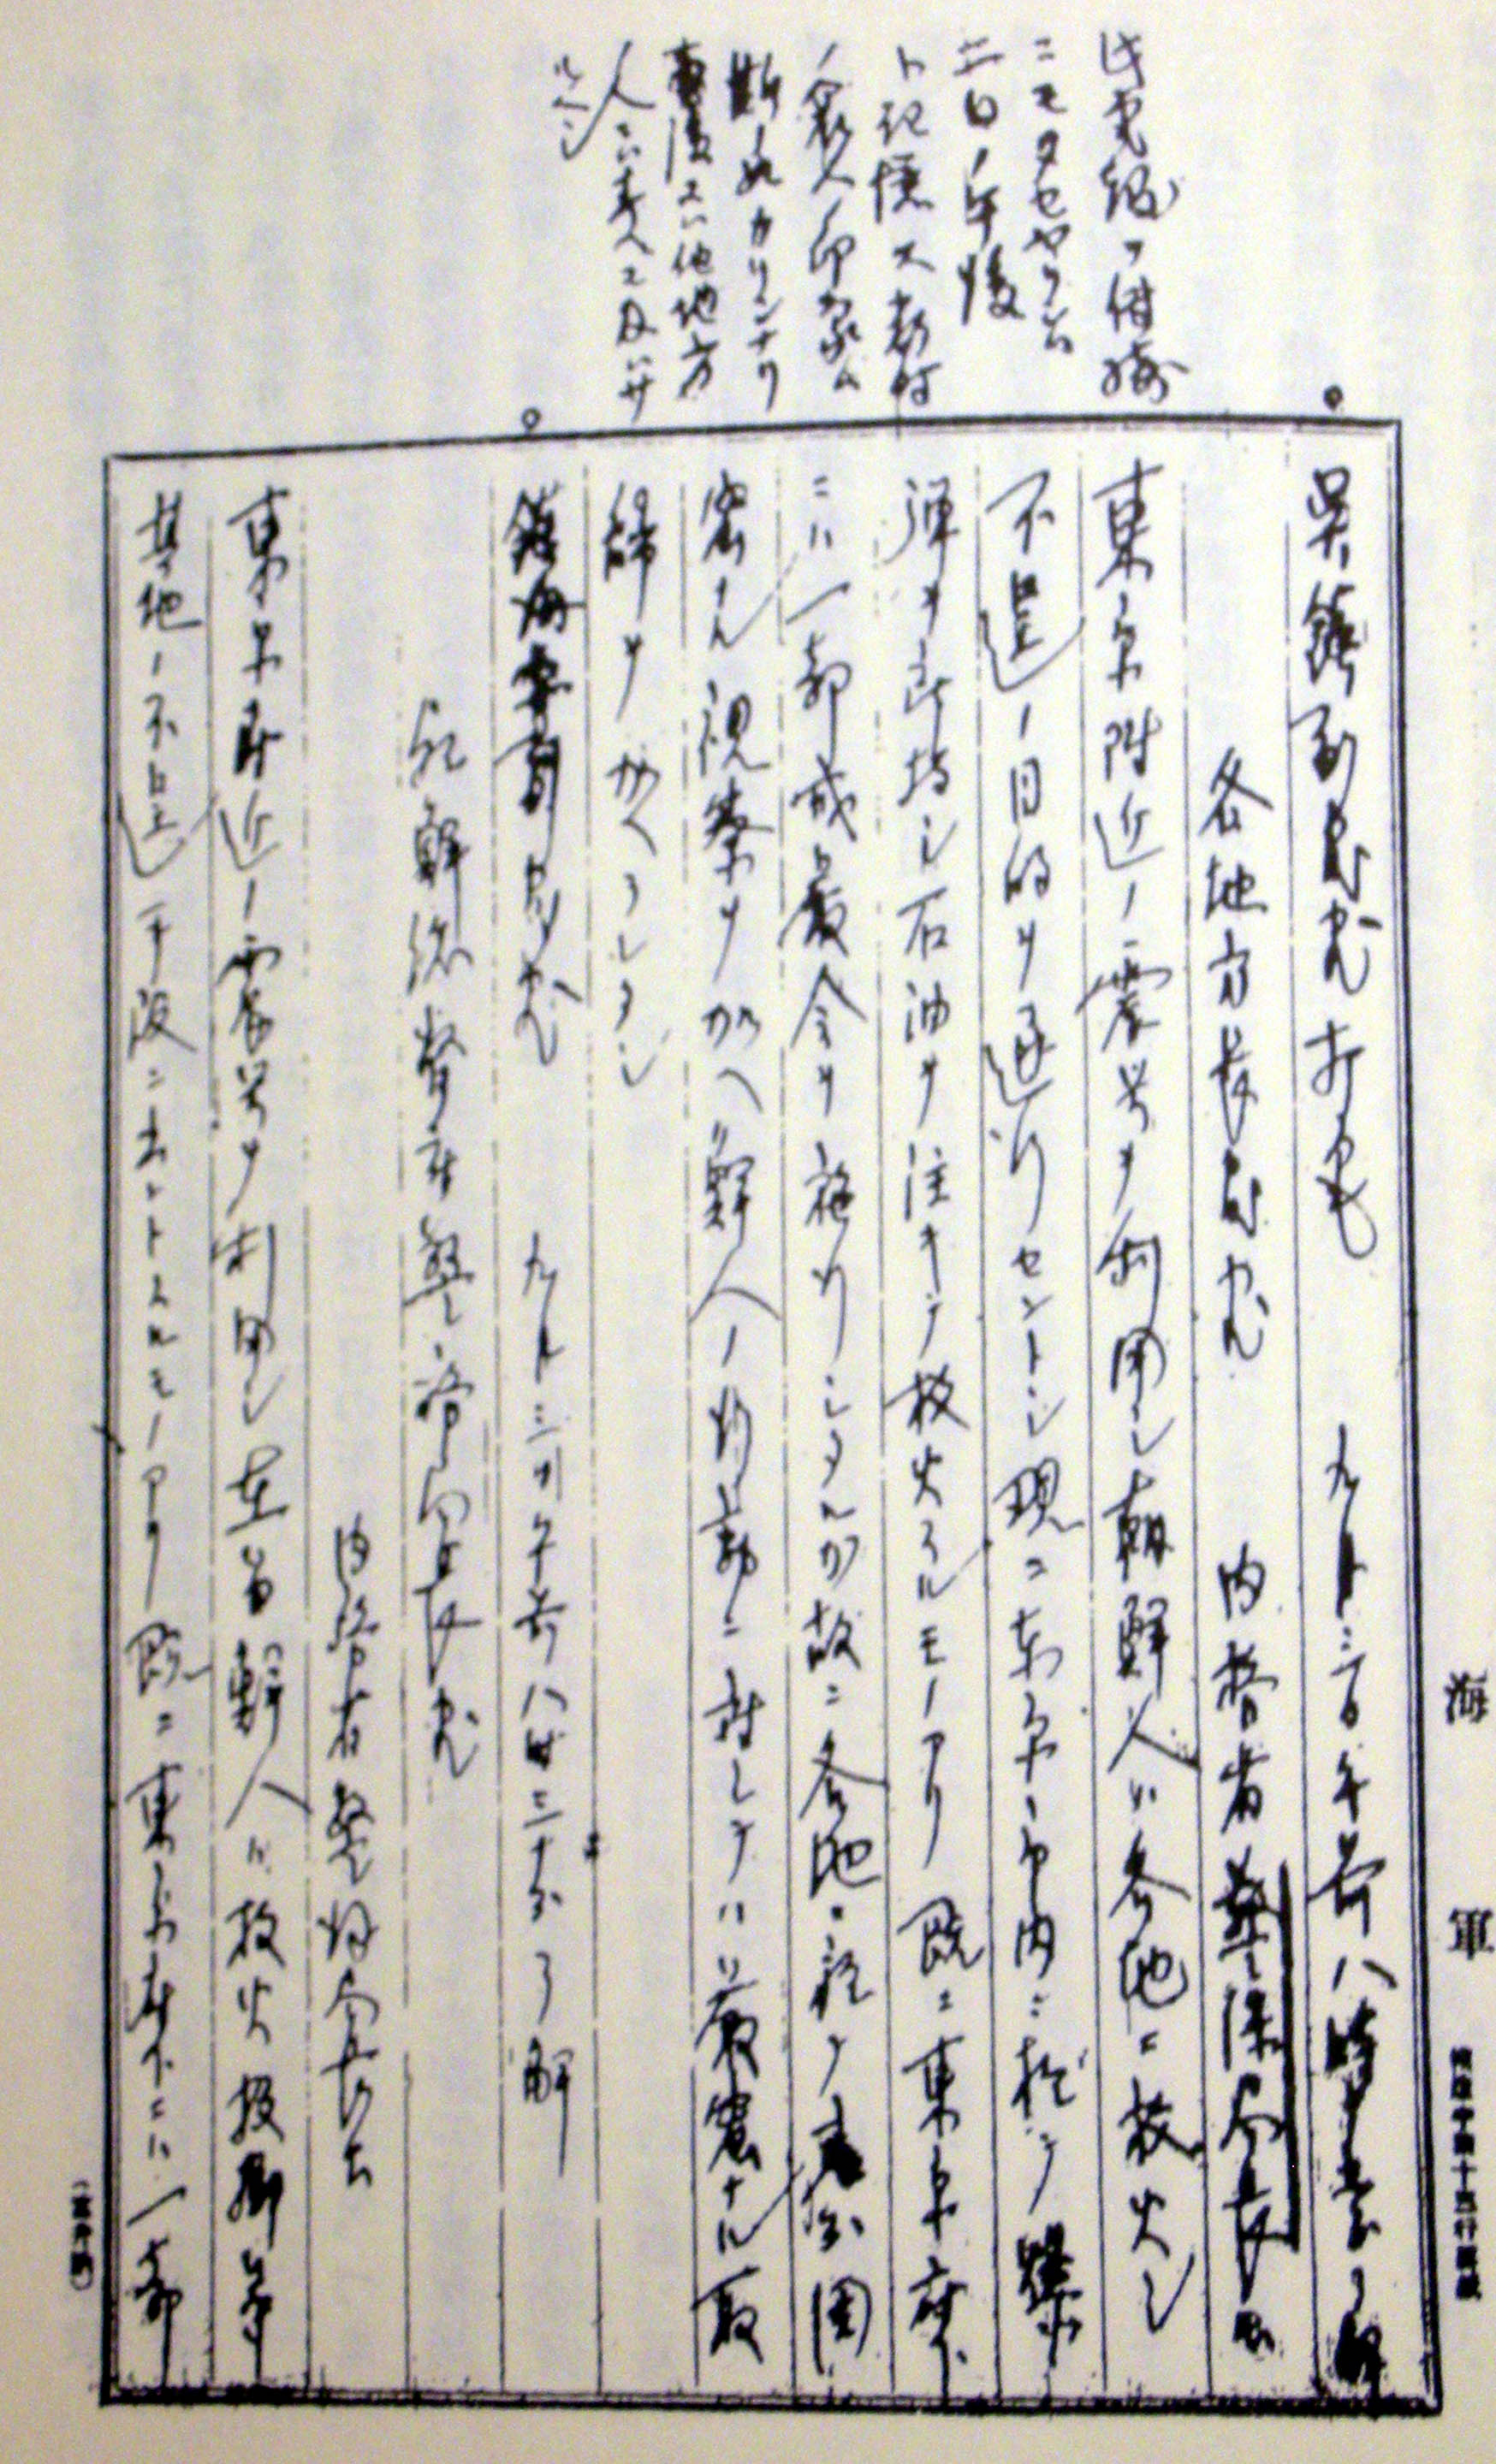 此電報ヲ伝騎
ニモタセヤリシハ
二日ノ午後
ト記憶ス
斯ノ如カリシナリ
事後又ハ他地方
呉鎮副官宛打電 九月三日午前八時十五分了解
各地方長官宛 内務省警保局長出
東京附近ノ震災ヲ利用シ朝鮮人ハ各地ニ放火シ
不逞ノ目的ヲ遂行セントシ現ニ東京市内ニ於テ爆
弾ヲ所持シ石油ヲ注キテ放火スルモノアリ既ニ東京府下
ニハ一部戒厳令ヲ施行シタルカ故ニ各地ニ於テ充分周
密ナル視察ヲ加ヘ鮮人ノ行動ニ対シテハ厳密ナル取
締ヲ加ヘラレタシ
鎮海要副官宛 九月三日午前八時三十分了解
朝鮮総督府警務局長宛
内務省警保局長出
東京附近ノ震災ヲ利用シ在留鮮人ハ放火投擲等
其他ノ不逞手段ニ出ントスルモノアリ既ニ東京府下ニハ一部
海軍